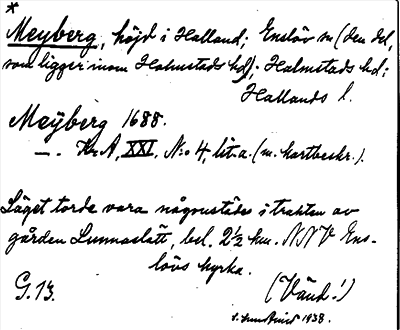 *
Meyberg, höjd i Halland; Enslöv sn (den del,
som ligger inom Halmstads hd); Halmstads hd;
Hallands l.
Meÿberg 1688.
—. Kr. A, XXI, N:o 4, lit. a. (m. kartbeskr.).
Läget torde vara någonstädes i trakten av
gården Lunnaslätt, bel. 2½ km. NNV Ens-
lövs kyrka.
G. 13. (Vänd!)
1938.